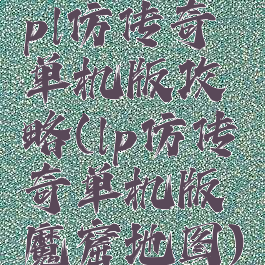 pl仿传奇
单机版攻
略(lp仿传
奇单机版
魔窟地图)